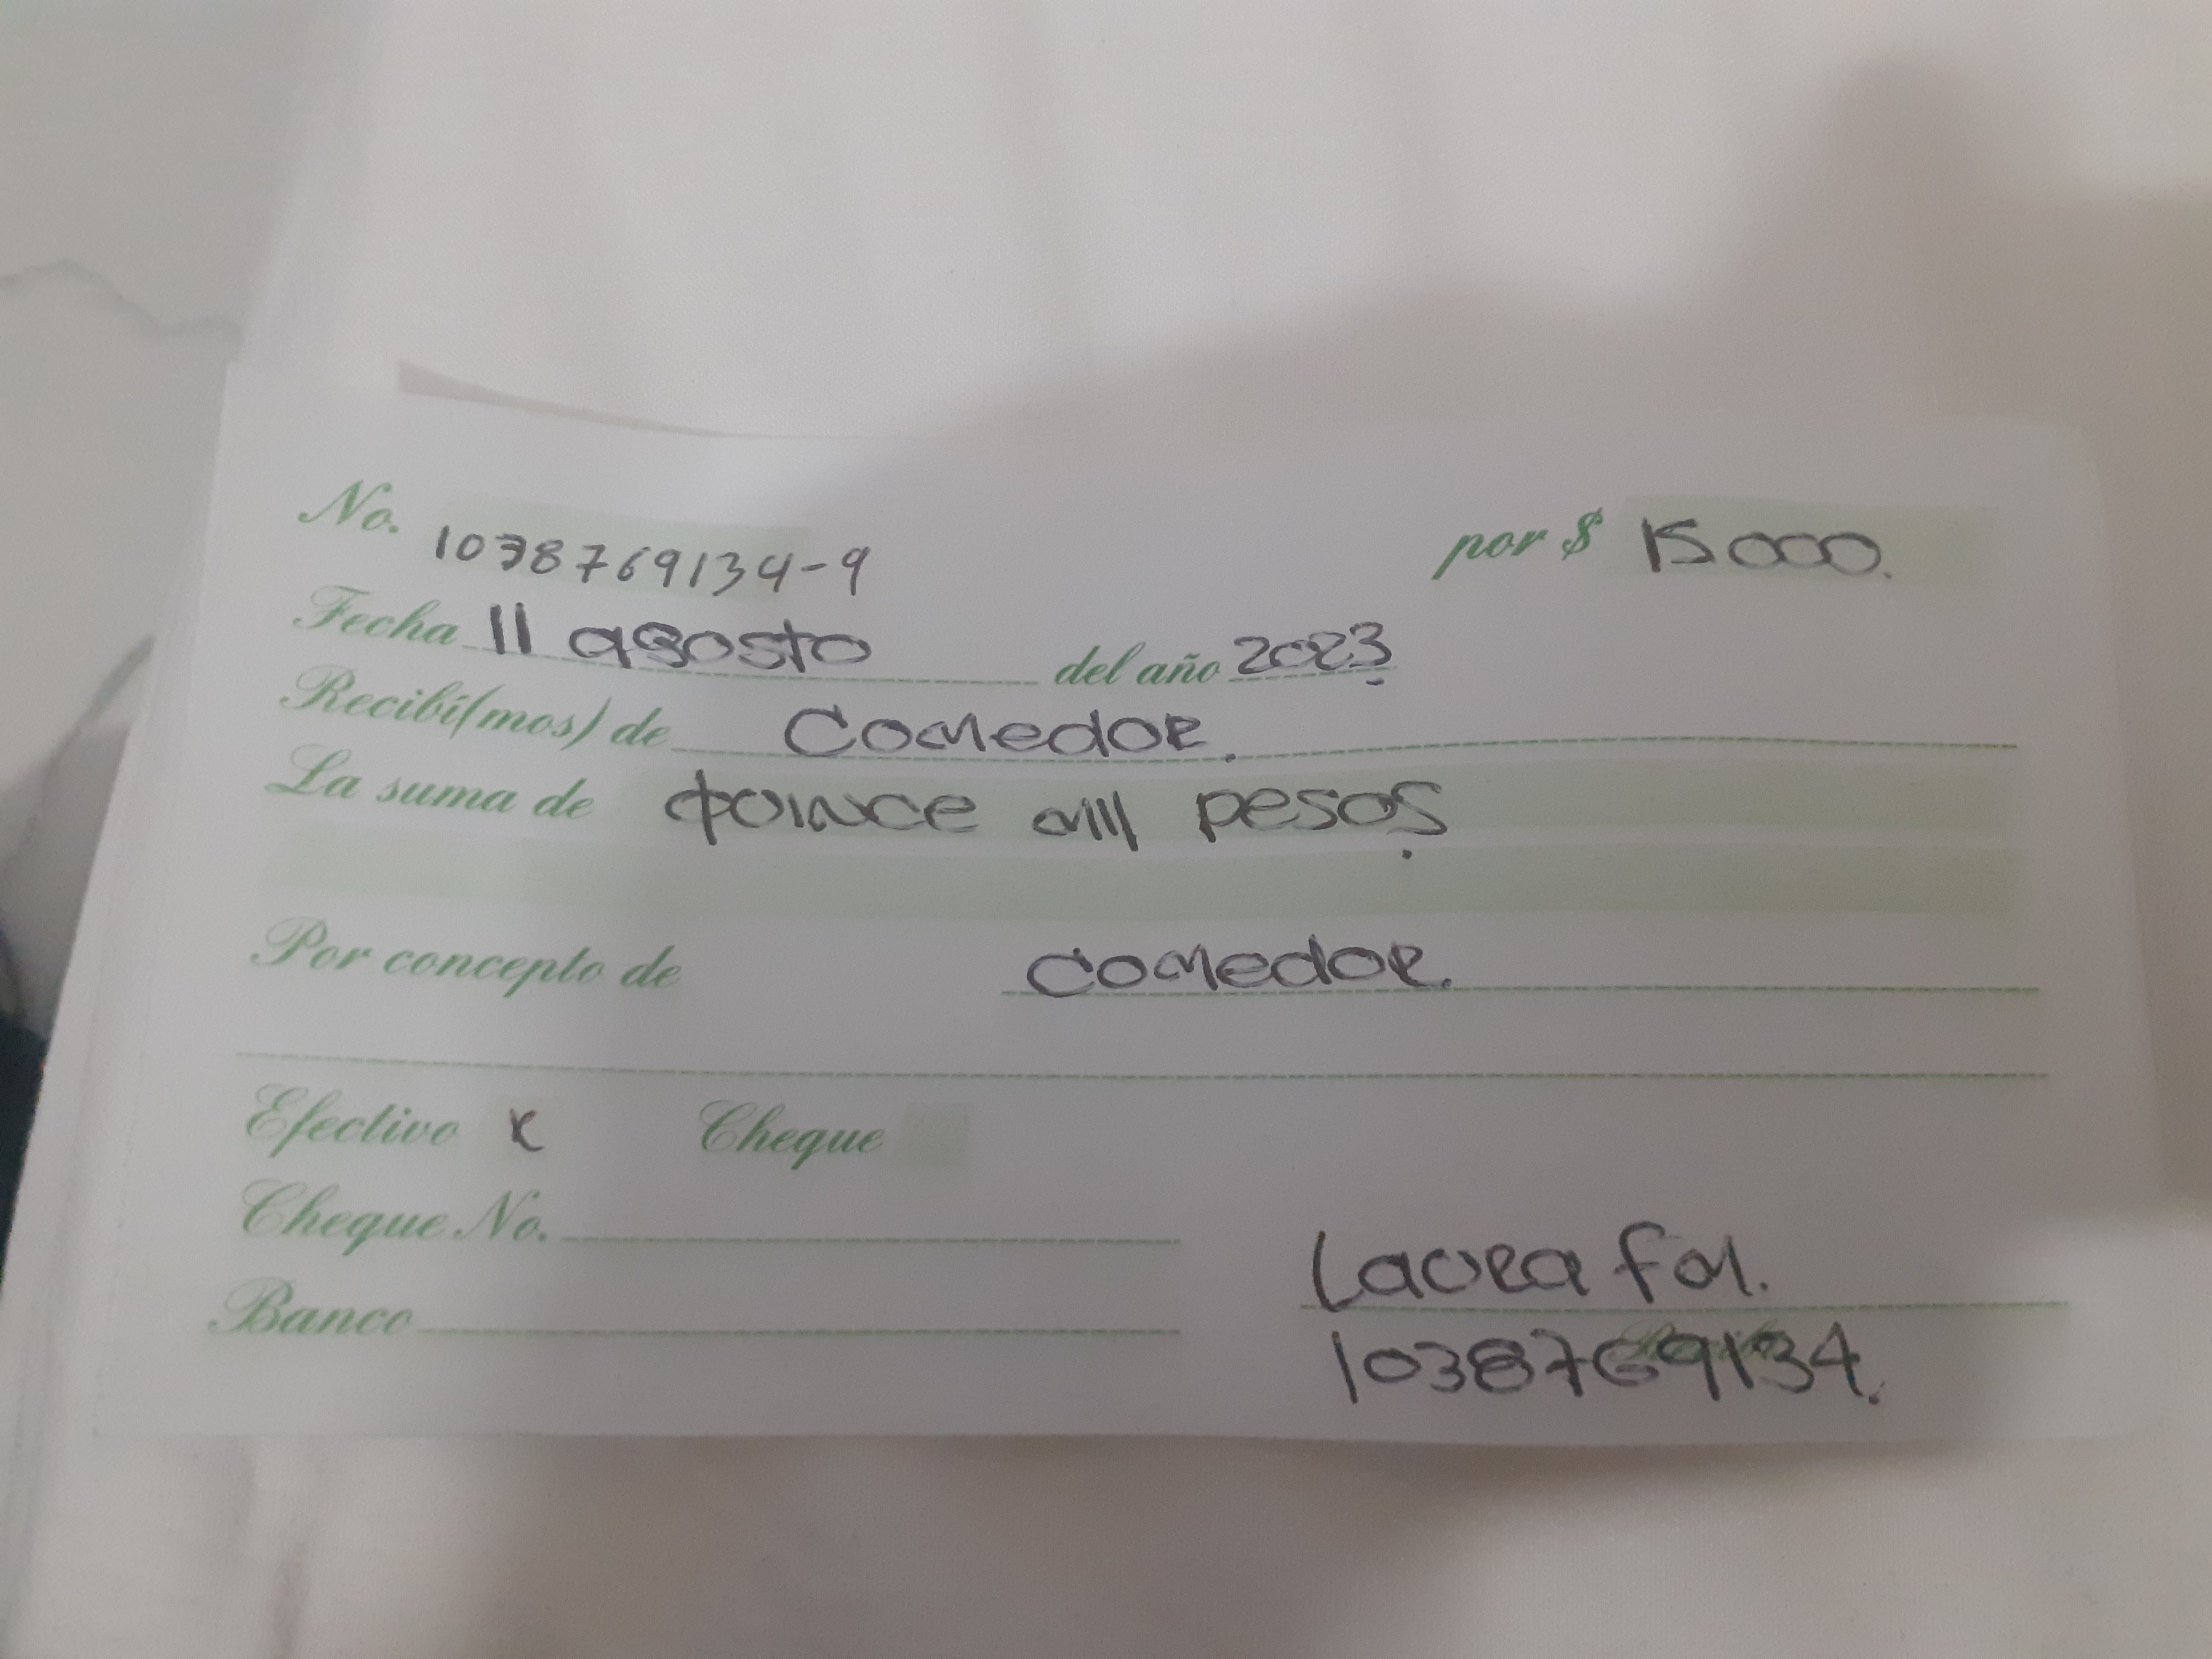 No. 1038769134-9 por $ 15000.
Fecha 11 agosto del año 2023
Recibí(mos) de Comedor.
La suma de quince mil pesos
Por concepto de comedor.
Efectivo x Cheque
Cheque No.
Banco
Laura fm.
1038769134.